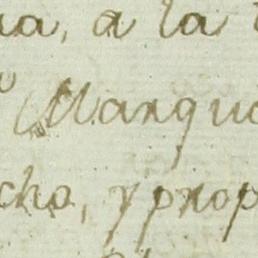 a, a la
Marqu
cho, y prop